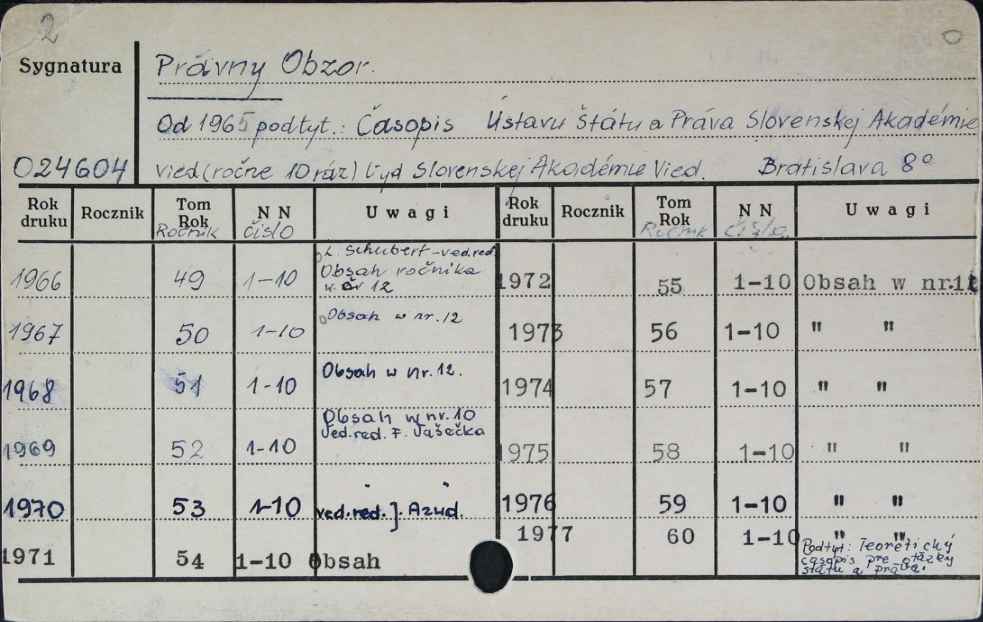 2
O
Sygnatura
Právny Obzor.
Od 1965 podtyt.: Časopis Ústavu Štátu a Práva Slovenskej Akadémie
024604
vied (ročne 10 ráz) Vyd Slovenskej Akadémie Vied. Bratislava 8°
Rok druku Rocznik Tom Rok Ročnik N N čislo Uwagi Rok druku Rocznik Tom Rok Ročnik N N Čislo Uwagi
1966 49 1-10 L. Schubert - ved.red. Obsah ročnika w čv 12 1972 55 1-10 Obsah w nr.12
1967 50 1-10 Obsah w nr.12 1973 56 1-10 " "
1968 51 1-10 Obsah w nr.12. 1974 57 1-10 " "
1969 52 1-10 Obsah w nr.10 Ved.red. F. Vašečka 1975 58 1-10 " "
1970 53 1-10 ved.red. J. Azud. 1976 59 1-10 " "
1971 54 1-10 Obsah 1977 60 1-10 " "
Podtyt: Teoretický
časopis pre otázky
štátu a práva.